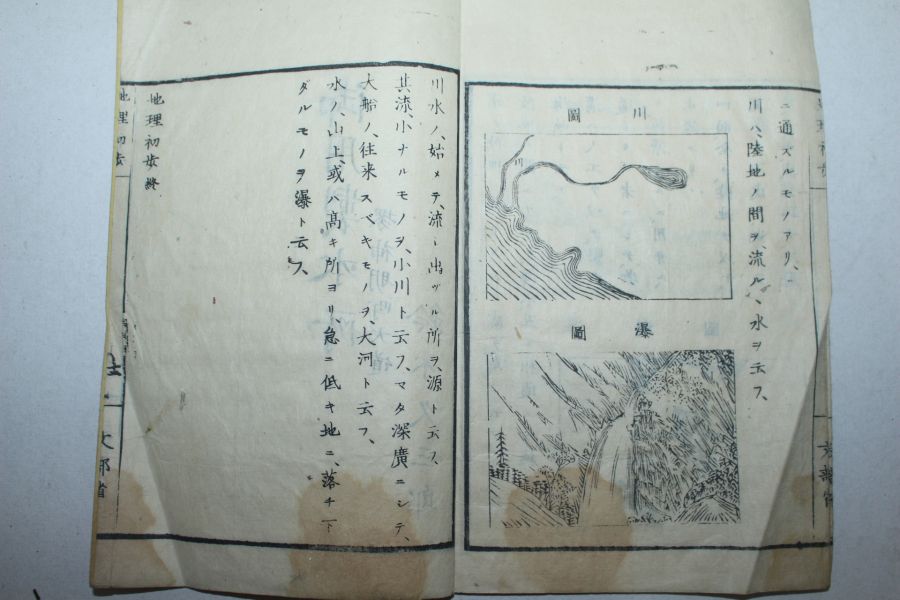 ニ通ズルモノアリ、
川ハ、陸地ノ間ヲ、流ルヽ、水ヲ云フ、
川圖
川
瀑圖
川水ノ、始メテ、流レ出ヅル所ヲ、源ト云フ、
其流、小ナルモノヲ、小川ト云フ、マタ深廣ニシテ、
大船ノ、往来スベキモノヲ、大河ト云フ、
水ノ、山上、或ハ高キ所ヨリ、急ニ低キ地ニ、落チ下
ダルモノヲ瀑ト云フ、
地理初歩終
地理初歩
文部省